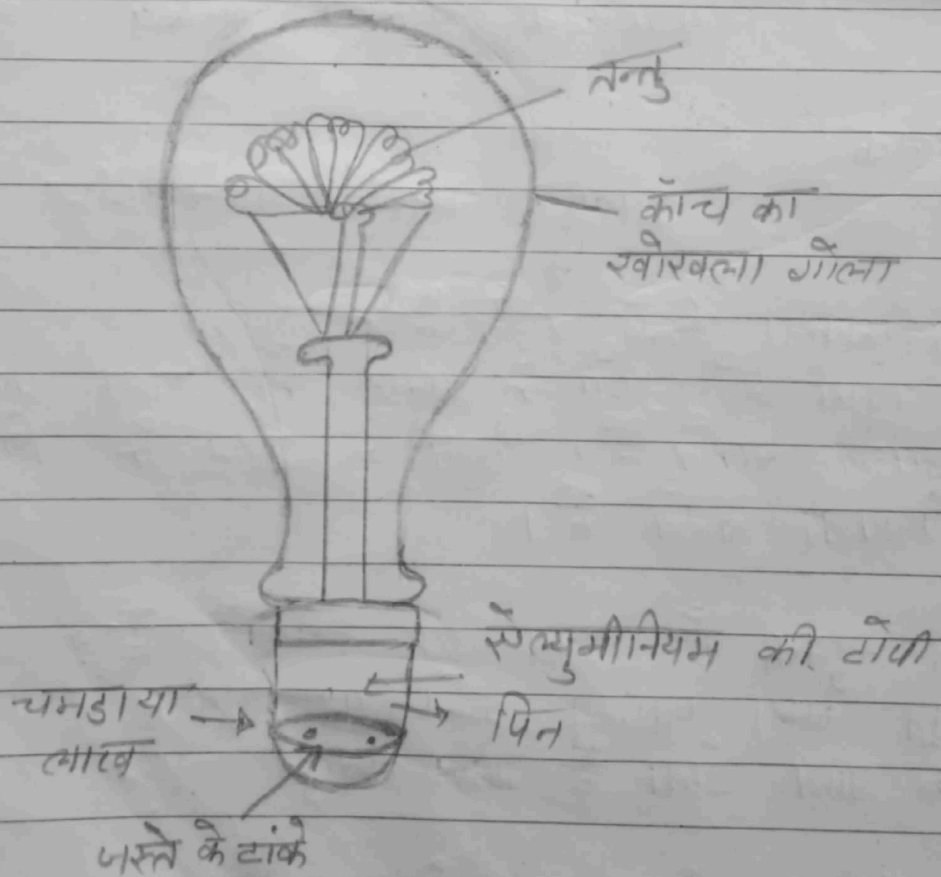 तन्तु
काँच का
खोखला गोला
एेल्युमीनियम की टोपी
पिन
चमडा या
लाख
जस्ते के टांके